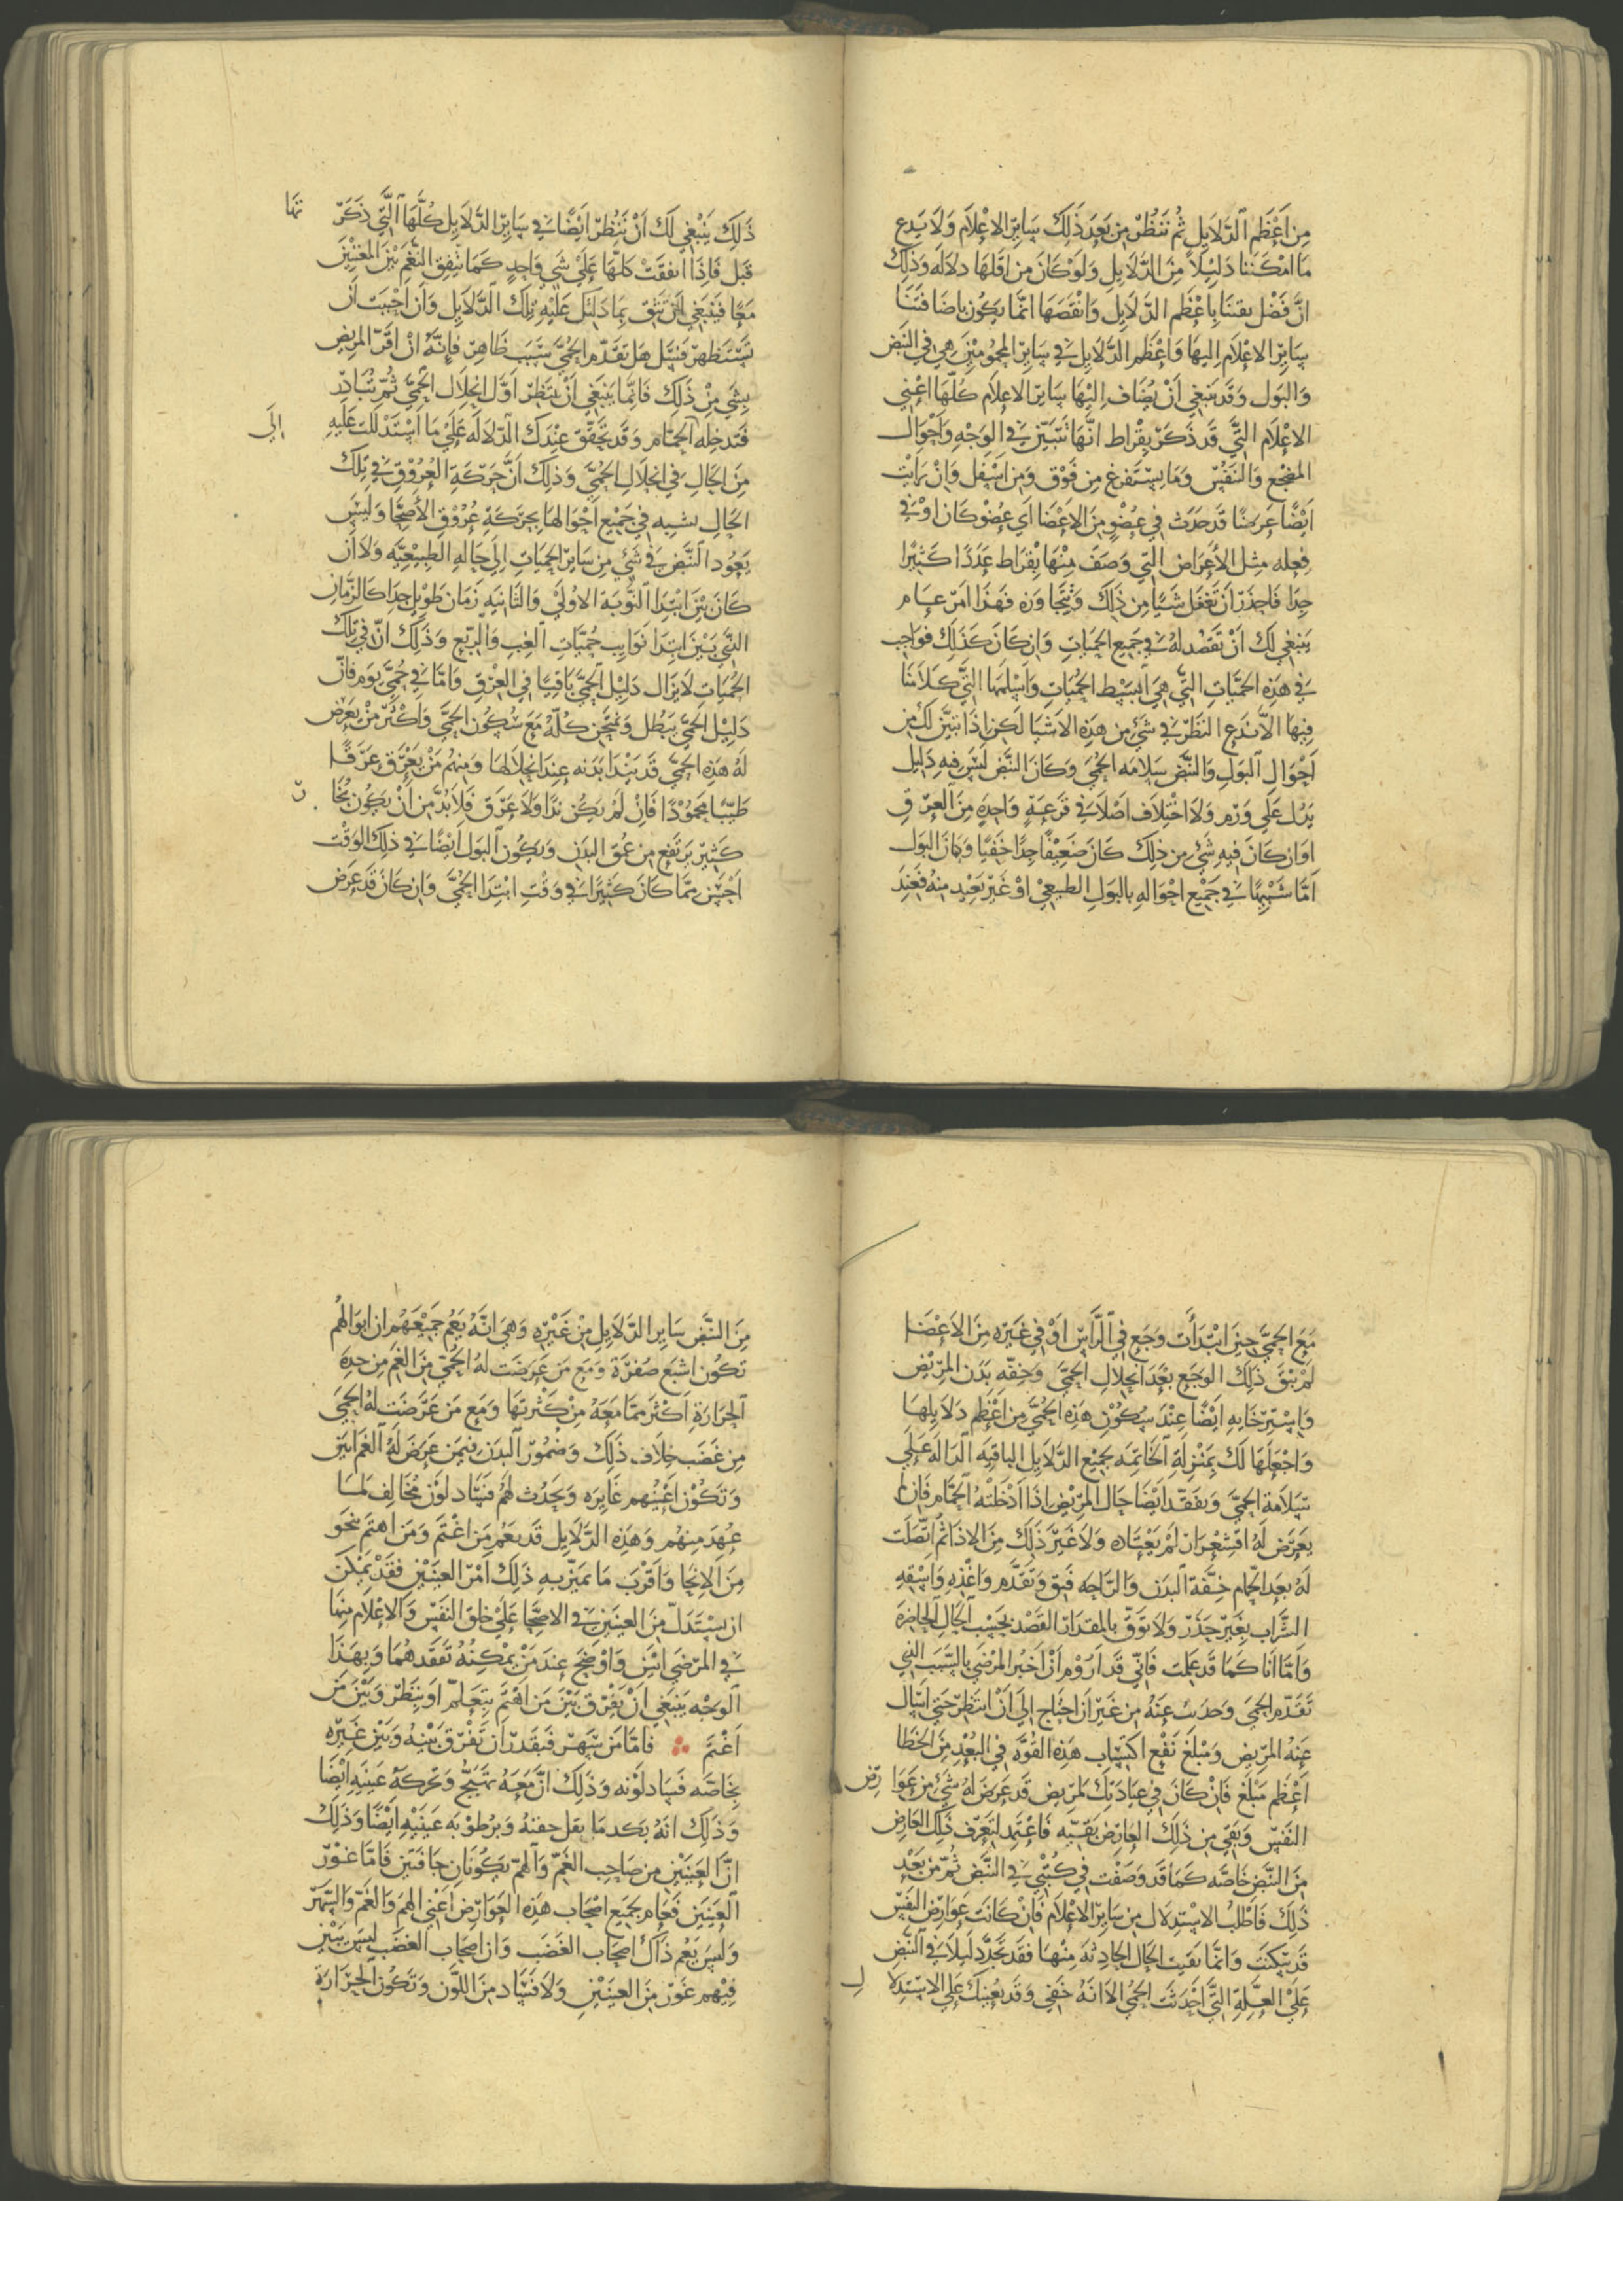 مِن اَعْظَم الدَّلَايِلِ ثُم تَنظُرْ مِن بَعدَ ذَلِكَ سَايِرِ الاِعْلَام وَلَا يَدع
مَا امْكَننا دَلِيْلاً مِنَ الدَّلَايِلِ وَلَوْ كَانَ مِن اَقلهَا دلاله وَذلِكَ
انَّ فَضْل يقننَا بِاعْظَم الدَّلَايِل وَانْقصَهَا انمَّا يكُون باضَافتنَا
سَايِرَ الاعْلام اليهَا وَاعْظَم الدَّلَايِل في سَايِرِ المحمُومْيْن هِي في النَبَض
وَالبَول وَقَد يَنبغِي اَنْ يُضَاف اِليْهَا سَايِرَ الاعلَام كُلّهَا اعْنِي
الاعْلَام التَّي قَد ذَكَرَ بقراط انَّهَا تتبَيَّن في الوَجْهِ وَاَحْوَال
المضْجَع وَالنَفَسْ وَمَا يسْتَفرغ مِن فَوْق وَمِن اسْفل وَانْ رَايْت
اَيْضًا عَرَضًا قَد حَدَث في عُضْوٍ مِنَ الاعْضَا اَي عُضْو كَان اوْ في
فِعله مثل الأَعرَاض التَّي وَصَفَ مِنْهَا بقْرَاط عَدَدًا كَثيْرًا
جِدًا فَاحذَرْ اَن تَغفَل شَيًا مِن ذَلِكَ وَتتجَاوَزه فَهَذا امَر عَام
يَنبغِي لَكَ اَنْ تَقصْد لهُ في جَمِيع الحميَاتِ وَاِن كَانَ كَذلِك فوَاجِب
في هَذِه الحمَّيَاتِ التَّي هِيَ ابسَط الحُمَيَاتِ وَاَسْلمهَا التَّي كَلَامَنَا
فِيهَا الاّ ندَع النَظَر في شَي مِن هَذِه الاَشيَا لَكِن اذَا تبيَّن لَكَ مِن
اَحْوَالِ البَولِ وَالنَّبَض سَلامَه الحُمَّيَ وَكانَ النَبَض لَيْسَ فيهِ دَلِيْل
يَدُل عَلي وَرَم وَلا اختْلَاف اصْلا في قرعَةٍ وَاحِدةٍ مِنَ العِرْقِ
اوَ ان كَانَ فيهِ شَي مِن ذلِكَ كَانَ ضَعِيْفًا جِدًا خَفيًا وَكانَ البَول
اَمَّا شَبيْهًا في جَمِيْع احْوَالهِ بالبَولِ الطبعِيْ اوْ غَيْر بَعِيْد منْهُ فعند
ذَلِكَ يَنبْغِي لَك اَنْ تَنظُر اَيْضًا في سَايِر الدَّلَايِل كُلّهَا التَّي ذكَرَ نهَا
قَبل فَاِذا اتفقَتْ كلهَا عَلَيْ شَي وَاحِدٍ كَمَا تتفِق النغَم بَيْنَ المغنّيِيْنَ
مَعًا فَيَنبَغي اَنْ تَثق بمَا دَلتك عَلَيْهِ تلِك الدَّلَايِل وَان احببَت اَن
تَسْتَظهر فَسَل هَل تقدّم الحُمَّيَ سَبَب ظَاهِر فإنّهُ انْ اقرّ المرِيض
بشَي مِنْ ذَلِكَ فَاِنمَّا يَنبَغي اَنْ ينتَظِر اَوَّل انحِلَال الحُمَّيَ ثُمّ تُبَادِر
فَتدخله الحمَام وَقَد تحقّق عِنْدكَ الدّلَالَه عَلَيْ مَا اَسْتَدْللت عَلَيهِ الَي
مِنَ الحَالِ في انحِلالِ الحُمَّيَ وَذَلِكَ اَنَّ حَركَةِ العُرُوْقِ في تِلك
الحَالِ تشبِه في جَمِيْع اَحْوَالهَا بحَركَةِ عُرُوْقِ الأَصِحَّا وَليسَ
يَعُود النَّبَض في شَي مِن سَايِر الحميَاتِ اِلي حَالهِ الطَبِيْعيَّه وَلَا اَن
كَانَ بَيْنَ ابتدَا النَّوبَة الاوُلَي وَالثَانيَهِ زَمَان طَوْيل جِدًا كَالزَّمَانِ
التَّي بَيْنَ ابتدَا نَوَايب حُمَّيَاتِ الغِب وَالرّبع وَذَلِكَ انّ في تلك
الحُمَيَاتِ لَا يَزَال دَلِيْل الحمَّي بَاقيًا في العِرْقِ وَامَّا في حُمَّيَ يَوم فانّ
دَلِيْل الحمَّيَ يَبْطُل وَيمتحِن كُلّهُ مَعَ سُكُون الحمَّيَ وَاكْثَر مَنْ يَعرض
لَهُ هَذِه الحمَّيَ قَد يَنْدَا بَدَنه عِندَ انحلَالهَا وَمِنهُم مَنْ يَعْرَق عَرَقًا
طيِّبًا محمُوْدًا فَاِن لَمْ يَكُن نَدًا وَلَا عَرَق فلَا بُدَّ مِن اَنْ يكُون بُخَا رّ
كَثير يَرتَفع مِن عُمْق البَدَن وَيكُون البَول اَيْضًا في ذلِك الوَقت
اَحْسَن ممَّا كَانَ كَثيْرًا في وَقْتِ ابْتدَا الحُمَّيَ وَاِن كَانَ قَد عَرَض
مَعَ الحمَّيَ حيْنَ ابْتَدَأَت وَجَع في الرَّاسِ اوْ في غَيْره مِنَ الاعضَا
لَم يَبْقَ ذَلِكَ الوجَع بَعْدَ انحِلَالِ الحمَّيَ وَخِفّةِ بَدَن المَريْض
وَاِسْتِرخَايهِ ايْضًا عِنْدَ سُكُوْن هَذِه الحُمَّيَ مِن اَعْظَم دَلَايِلهَا
وَاجْعَلهَا لَكَ بمنَزِلةِ الخَاتِمَه بجمِيْع الدَّلَايِل الباقيَه الدّالَه عَلَي
سَلَامَة الحمَّيَ وَتفقَّد ايْضًا حَال المَريْض اِذَا ادْخَلتْهُ الحمَّام فَان لَم
يعَرَض لَهُ اقشِعْرَار لَمْ يَعْتَاده وَلَا غَيْر ذَلكَ مِنَ الاذَا ثُم اتصّلَت
لَهُ بَعدَ الحمَام خِفَّة البدَن وَالرَّاحَه فثق وَتَقدَّم وَاغْذهِ وَاسْقِهِ
الشَّرَاب بغَيْر حَذَرْ وَلَا تَوَقّ بالمقدَارِ القَصْد بحَسْب الحَال الحَاضِرَة
وَامَّا انَا كَمَا قَد عَلمت فَانيّ قَد اَرُوْم اَنْ اخبُر المرْضَي بالسَّبَب التي
تَقَدّم الحميَ وَحدَثت عَنهُ مِن غَيْر اَن احتَاج اِلَيَ اَنْ انتَظِر حَتيَ اسَال
عَنهُ المرِيض وَمَبلَغ نفع اكتِسَاب هَذِه القوَّه في البُعْدِ مِنَ الخَطَا
اَعْظَم مَبلَغ فَاِنْ كَانَ في عيَادَتك لمَريْض قَد عَرَضَ لَهُ شَيْ مِن عَوَا رِض
النَفَسْ وَبَقي مِن ذَلِكَ العَارِض بَقيّه فَاعْتَمِد لتعَرّف ذَلكَ العَارِض
مِنَ النَّبَض خَاصَّه كَمَا قَد وَصَفْت في كتُبيْ في النَّبَض ثُمّ مِن بَعْدِ
ذَلِكَ فَاطْلبُ الاسْتدلَال مِن سَايِر الاعلَام فَانْ كَانَت عَوَارِض النَفَسْ
قَد سَكنَتَ وَانمَّا بَقيت الحَال الحَادِثَه مِنْهَا فقَد تجَد دَليلَا في النَّبَض
عَلَيْ العِلَّةِ التَّي اَحْدَثت الحُمَّيَ الا انَهُ خَفي وَقَد يُعينُكَ عَلَي الاسْتدلَا ل
مِنَ النَّبَض سَايِر الدَّلَايِل مِنْ غَيْره وَهيَ انَّهُ يَعُم جمَيْعَهُم ان ابوَالهُم
تكُون اشبَع صُفرَةً وَمَع مَن عَرَضَت لهُ الحُمَّي مِنَ الغَم مِن حِدَةِ
الحرَارَةِ اَكثَر ممَّا مَعَهُ مِنْ كَثْرتهَا وَمَع مَن عَرَضَت لهُ الحميَ
مِن غَضَب خِلَاف ذَلِكَ وَضُمُوْر البدَن فيمَن عَرَضَ لَهُ الغَم ابيَن
وَتَكُوْن اعْيُنهم غَايرَه وَيحَدُث لَهُم فسَاد لَوْن مُخالِف لمَا
عُهِدَ مِنهُم وَهَذِه الدَّلَايِل قَد يَعُم مَن اغْتَم وَمَن اهتَم بنَحَو
مِنَ الانحَا وَاَقْرَب مَا تميّز بهِ ذَلِكَ اَمْر العينَيْن فقَد يمكن
ان يسْتَدَلّ مِنَ العَينَين في الاصِحَّا عَلَيْ خلق النَفسْ وَالاعْلَام منهَا
في المَرْضَي ابيَن وَاوْضح عِندَ مَنْ يمكِنُهُ تَفَقدهُما وَبهَذَا
الوَجْه يَنبَغي اَنْ يفَرّق بَيْنَ مَن اهْتم بتعَلم اوَ بنَظَر وَبَيْن مَن
اغْتَمَ فَامَّا مَن سَهر فيَقدَر اَن تَفرّق بَيْنهُ وَبَيْن غَيْره
بخَاصّه فسَاد لَوْنه وَذَلِكَ انَّ مَعَهُ تَهيج وَتَحركَة عَينَيهِ ايْضًا
وَذَلِك انَهُ بَكد مَا يقل جفنهُ وَبرُطوْبَه عَينَيْهِ ايْضًا وَذَلِك
انَّ العَيْنَيْن مِن صَاحِب الغَمّ وَالهمّ يكُونَان جَافتَين فَامَّا غوْر
العَيْنَيْن فَعَام بجَمِيع اصْحَاب هَذِه العَوَارِض اعْني الهم وَالغَمّ وَالسَّهَر
وَليسَ يَعُم ذَاكَ اصحَاب الغَضَب وَان اصحَاب الغضَب ليسَ يَبيْن
فِيْهم غَوْر مِنَ العينَيْنِ وَلَا فسَاد مِنَ اللّون وَتَكُون الحَرَارَة